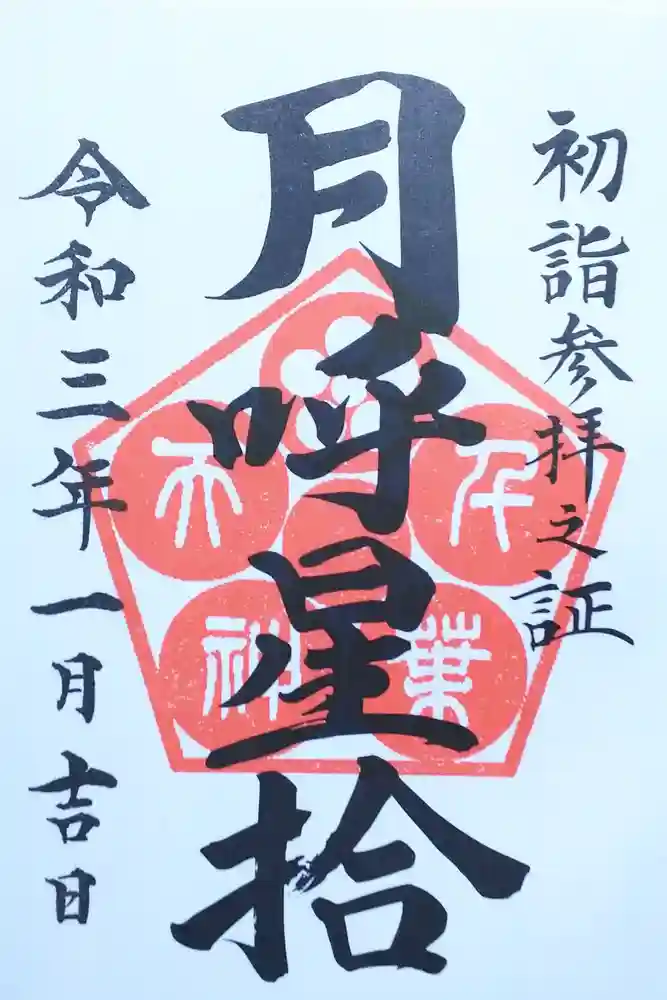 初詣参拝之証
月呼星拾
令和三年一月吉日
千葉天神